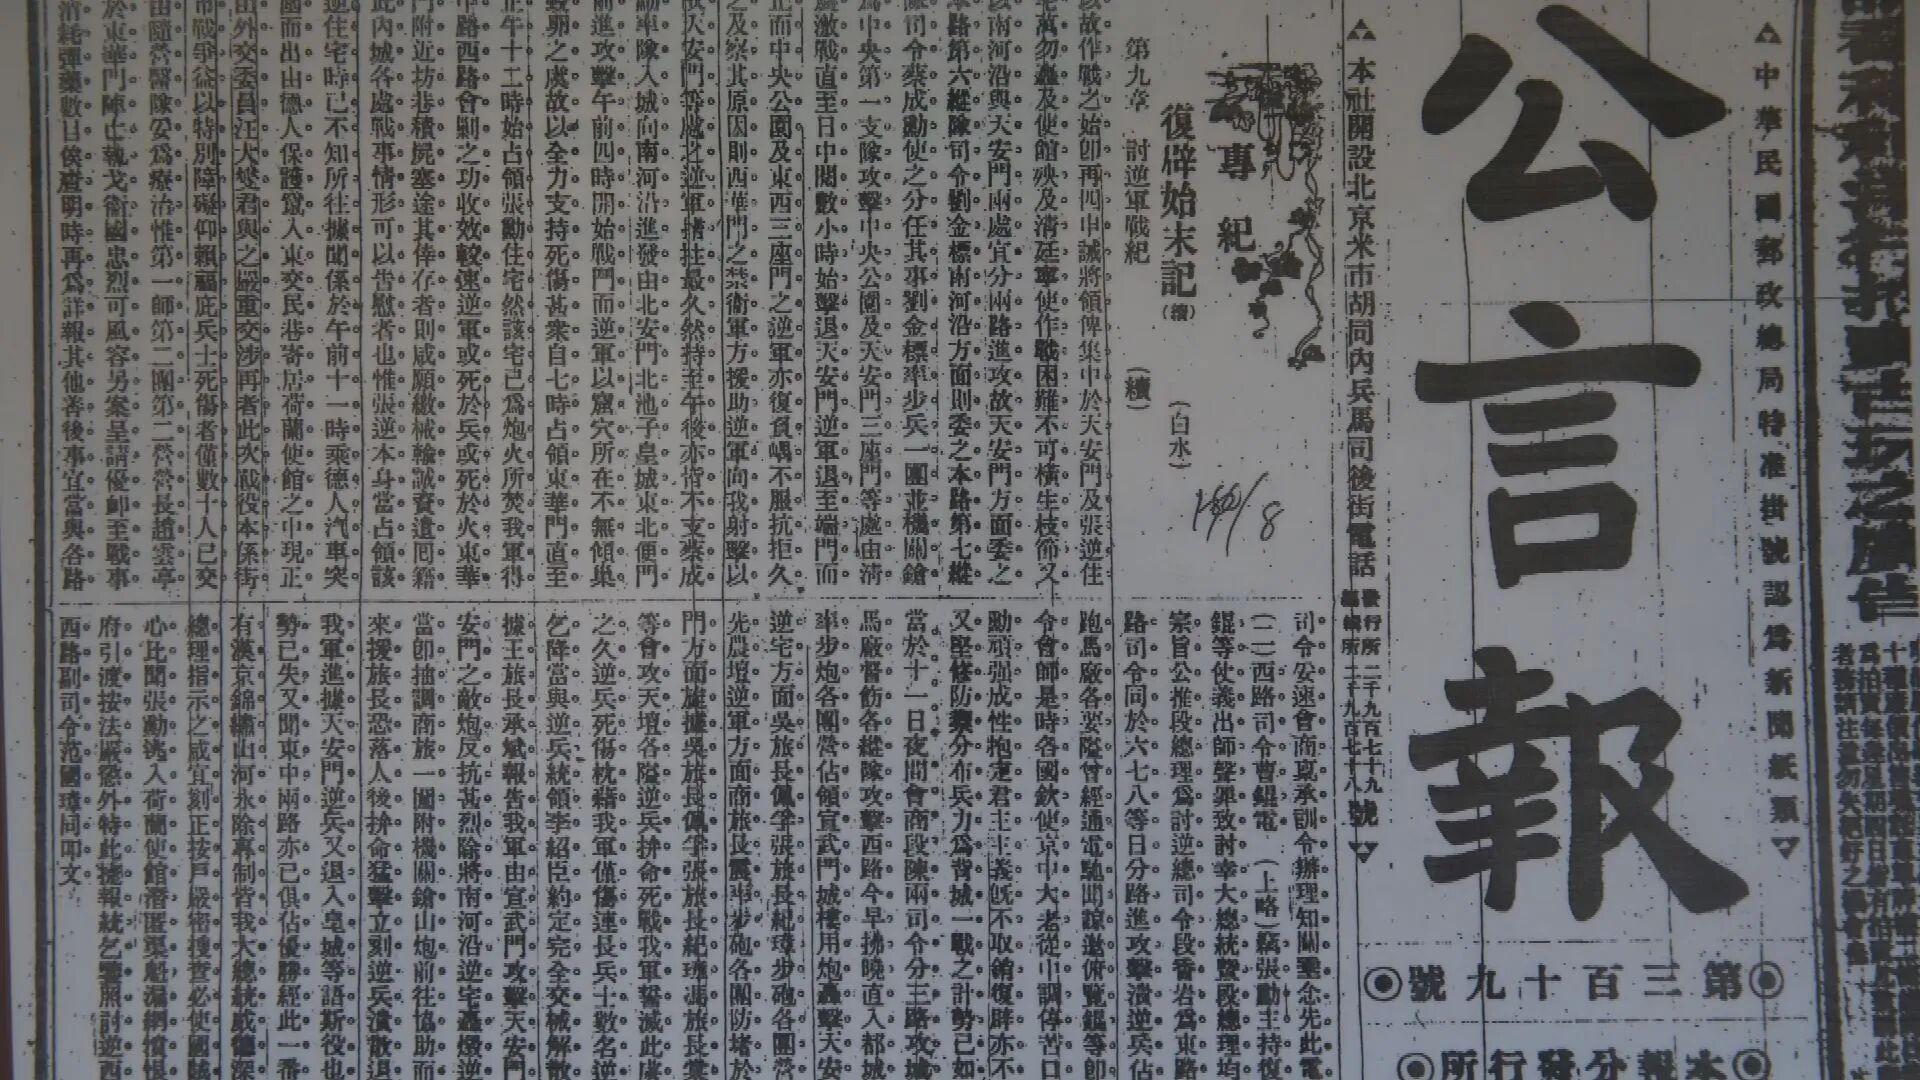 △中華民國郵政總局特准掛號認爲新聞紙類▽
公言報
◉第三百十九號◉
◉本報分發行所◉
△本社開設北京米市胡同內兵馬司後街電話
發行所二千九百七十九號▽
編輯所二千九百七十八
專紀
復辟始末記(續)
(白水)
第九章 討逆軍戰紀 (續)
以故作戰之始卽再四申誡將領俾集中於天安門及張逆住
宅萬勿轟及使館殃及清廷寧使作戰困難不可橫生枝節又
以南河沿與天安門兩處宜分兩路進攻故天安門方面委之
本路第六縱隊司令劉金標南河沿方面則委之本路第七縱
隊司令蔡成勳使之分任其事劉金標率步兵一團並機關鎗
爲中央第一支隊攻擊中央公園及天安門三座門等處由清
激戰直至日中閱數小時始擊退天安門逆軍退至端門而
正面中央公園及東西三座門之逆軍亦復負嵎不服抗拒久
之及察其原因則西華門之禁衛軍方援助逆軍向我射擊以
天安門等處之逆軍撐拄最久然持至午後亦皆不支蔡成
勳率隊入城向南河沿進發由北安門北池子皇城東北便門
前進攻擊午前四時開始戰鬥而逆軍以窟穴所在不無傾巢
毀卵之虞故以全力支持死傷甚衆自七時占領東華門直至
正午十二時始占領張勳住宅然該宅已爲炮火所焚我軍得
中路西路會剿之功收效較速逆軍或死於兵或死於火東華
門附近坊巷積屍塞途其倖存者則咸願繳械輸誠資遣囘籍
此內城各處戰事情形可以告慰者也惟張逆本身當占領該
逆住宅時已不知所往據聞係於午前十一時乘德人汽車突
國而出由德人保護竄入東交民巷寄居荷蘭使館之中現正
由外交委員江大燮君與之嚴重交涉再者此次戰役本係街
市戰爭益以特別障礙仰賴福庇兵士死傷者僅數十人已交
由隨營醫隊妥爲療治惟第一師第二團第二營營長趙雲亭
於東華門陣亡執戈衛國忠烈可風容另案呈請優卹至戰事
消耗彈藥數目俟查明時再爲詳報其他善後事宜當與各路
司令妥速會商稟承訓令辦理知關垂念先此電
(二)西路司令曹錕電 (上略)竊張勳主持復
錕等仗義出師聲罪致討幸大總統暨段總理均
宗旨公推段總理爲討逆總司令段香岩爲東路
路司令同於六七八等日分路進攻擊潰逆兵佔
跑馬廠各要隘曾經通電馳聞諒邀俯覽錕等卽
令會師是時各國欽使京中大老從中調停苦口
勳頑强成性抱定君主主義旣不取銷復辟亦不
又堅修防禦分布兵力爲背城一戰之計勢已如
當於十一日夜間會商段陳兩司令分三路攻城
馬廠督飭各縱隊攻擊西路今早拂曉直入都城
率步炮各團營佔領宣武門城樓用炮轟擊天安
逆宅方面吳旅長佩孚張旅長紀璋步砲各團營
先農壇逆軍方面商旅長震率步砲各團防堵於
門方面旋據吳旅長佩孚張旅長紀璋馮旅長棠
等會攻天壇各隘逆兵拚命死戰我軍誓滅此虜
之久逆兵死傷枕藉我軍僅傷連長兵士數名逆
乞降當與逆兵統領李紹臣約定完全交械解散
據王旅長承斌報告我軍由宣武門攻擊天安門
安門之敵炮反抗甚烈除將南河沿逆宅轟燬逆
當卽抽調商旅一團附機關鎗山炮前往協助而
來援旅長恐落人後拚命猛擊立刻逆兵潰散退
我軍進據天安門逆兵又退入皇城等語斯役也
勢已失又聞東中兩路亦已俱佔優勝經此一番
有漢京錦繡山河永除專制皆我大總統威德深
總理指示之威宜刻正按戶嚴密搜查必使國賊
心此聞張勳逃入荷蘭使館潛匿渠魁漏網憤恨
府引渡按法嚴懲外特此據報統乞鑒照討逆西
西路副司令范國璋同叩文